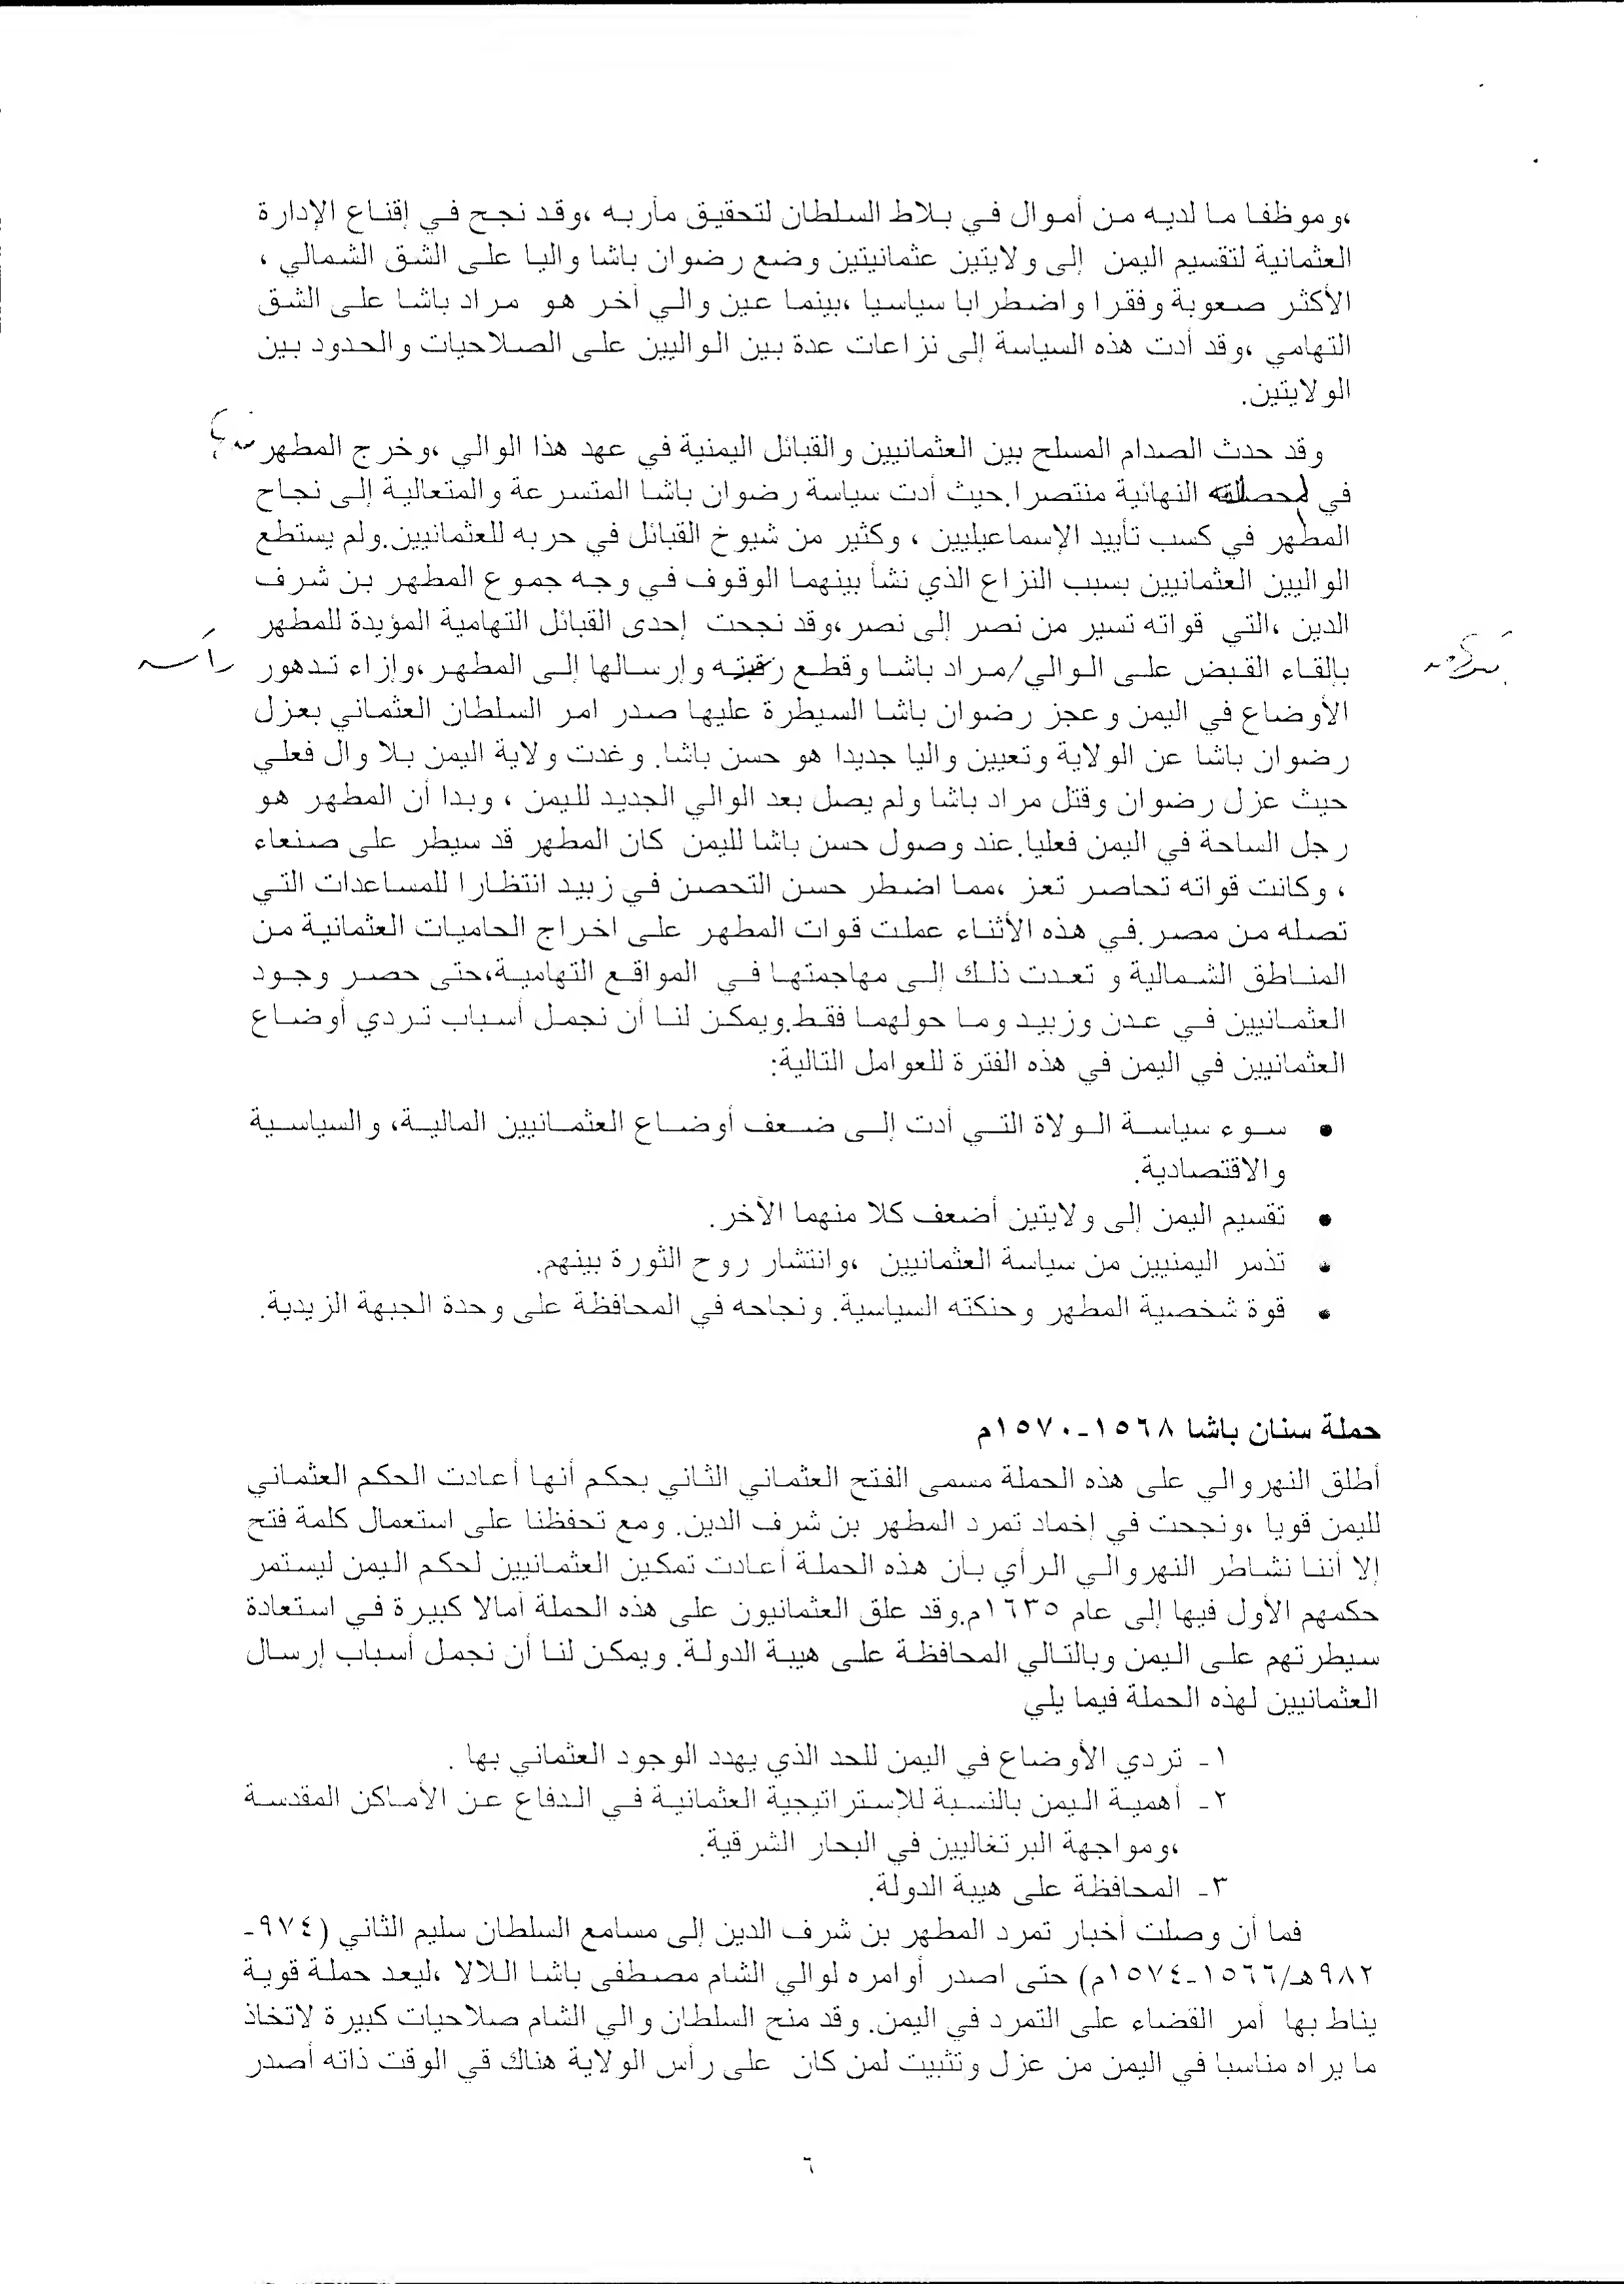 ،وموظفا ما لديه من أموال في بلاط السلطان لتحقيق مأربه ،وقد نجح في إقناع الإدارة
العثمانية لتقسيم اليمن إلى ولايتين عثمانيتين وضع رضوان باشا واليا على الشق الشمالي ،
الأكثر صعوبة وفقرا واضطرابا سياسيا ،بينما عين والي أخر هو مراد باشا على الشق
التهامي ،وقد أدت هذه السياسة إلى نزاعات عدة بين الواليين على الصلاحيات والحدود بين
الولايتين.
وقد حدث الصدام المسلح بين العثمانيين والقبائل اليمنية في عهد هذا الوالي ،وخرج المطهر
في النهائية منتصرا.حيث أدت سياسة رضوان باشا المتسرعة والمتعالية إلى نجاح
المطهر في كسب تأييد الإسماعيليين ، وكثير من شيوخ القبائل في حربه للعثمانيين.ولم يستطع
الواليين العثمانيين بسبب النزاع الذي نشأ بينهما الوقوف في وجه جموع المطهر بن شرف
الدين ،التي قواته تسير من نصر إلى نصر،وقد نجحت إحدى القبائل التهامية المؤيدة للمطهر
بإلقاء القبض على الوالي/مراد باشا وقطع رقبته وإرسالها إلى المطهر،وإزاء تدهور
راسه
الأوضاع في اليمن وعجز رضوان باشا السيطرة عليها صدر امر السلطان العثماني بعزل
رضوان باشا عن الولاية وتعيين واليا جديدا هو حسن باشا. وغدت ولاية اليمن بلا وال فعلي
حيث عزل رضوان وقتل مراد باشا ولم يصل بعد الوالي الجديد لليمن ، وبدا أن المطهر هو
رجل الساحة في اليمن فعليا.عند وصول حسن باشا لليمن كان المطهر قد سيطر على صنعاء
، وكانت قواته تحاصر تعز ،مما اضطر حسن التحصن في زبيد انتظارا للمساعدات التي
تصله من مصر.في هذه الأثناء عملت قوات المطهر على اخراج الحاميات العثمانية من
المناطق الشمالية و تعدت ذلك إلى مهاجمتها في المواقع التهامية،حتى حصر وجود
العثمانيين في عدن وزبيد وما حولهما فقط.ويمكن لنا أن نجمل أسباب تردي أوضاع
العثمانيين في اليمن في هذه الفترة للعوامل التالية:
• سوء سياسة الولاة التي أدت إلى ضعف أوضاع العثمانيين المالية، والسياسية
والاقتصادية.
• تقسيم اليمن إلى ولايتين أضعف كلا منهما الآخر.
• تذمر اليمنيين من سياسة العثمانيين ،وانتشار روح الثورة بينهم.
• قوة شخصية المطهر وحنكته السياسية. ونجاحه في المحافظة على وحدة الجبهة الزيدية.
حملة سنان باشا ١٥٦٨-١٥٧٠م
أطلق النهروالي على هذه الحملة مسمى الفتح العثماني الثاني بحكم أنها أعادت الحكم العثماني
لليمن قويا ،ونجحت في إخماد تمرد المطهر بن شرف الدين. ومع تحفظنا على استعمال كلمة فتح
إلا أننا نشاطر النهروالي الرأي بأن هذه الحملة أعادت تمكين العثمانيين لحكم اليمن ليستمر
حكمهم الأول فيها إلى عام ١٦٣٥م.وقد علق العثمانيون على هذه الحملة أمالا كبيرة في استعادة
سيطرتهم على اليمن وبالتالي المحافظة على هيبة الدولة. ويمكن لنا أن نجمل أسباب إرسال
العثمانيين لهذه الحملة فيما يلي
١- تردي الأوضاع في اليمن للحد الذي يهدد الوجود العثماني بها .
٢- أهمية اليمن بالنسبة للإستراتيجية العثمانية في الدفاع عن الأماكن المقدسة
،ومواجهة البرتغاليين في البحار الشرقية.
٣- المحافظة على هيبة الدولة.
فما أن وصلت أخبار تمرد المطهر بن شرف الدين إلى مسامع السلطان سليم الثاني (٩٧٤-
٩٨٢هـ/١٥٦٦-١٥٧٤م) حتى اصدر أوامره لوالي الشام مصطفى باشا اللالا ،ليعد حملة قوية
يناط بها أمر القضاء على التمرد في اليمن. وقد منح السلطان والي الشام صلاحيات كبيرة لاتخاذ
ما يراه مناسبا في اليمن من عزل وتثبيت لمن كان على رأس الولاية هناك قي الوقت ذاته أصدر
٦